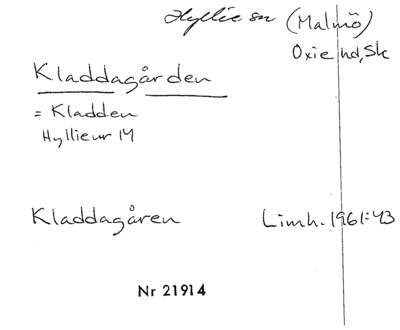 Hyllie sn (Malmö)
Oxie hd, Sk
Kladdagården
= Kladden
Hyllievr 14
Kladdagåren Limh. 1961:43
Nr 21914